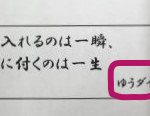 入れるのは一瞬、
に付くのは一生
ゆうダイ